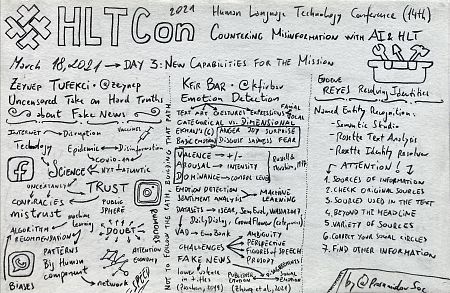 HLTCon 2021 Human Language Technology Conference (14th)
Countering Misinformation with AI & HLT
March 18, 2021 → Day 3: New Capabilities for the Mission
Zeynep Tufekci · @zeynep
Uncensored Take on Hard Truths
about Fake News
Internet → Disruption
Technology
Vaccines
Epidemic Disinformation
Covid-era
Science NYT Atlantic
Uncertainty
TRUST
Conspiracies
mistrust
Public
Sphere
Algorithm machine learning
Recommendation
"Doubt"
Patterns
Big Human
component
Biases
Attention
Economy
network
Speed
Kfir Bar · @kfirbar
Emotion Detection
Text and Gestures Expressions Facial
Vocal
Categorical vs Dimensional
Ekman's (6) Anger Joy Surprise
Basic Emotions Disgust Sadness Fear
Valence → +/-
Arousal → Intensity
Dominance → Control level
Russell &
Emotion Detection
Sentiment Analysis Machine
Learning
Datasets → ISEAR, SemEval, WASSA2017,
DailyDialog, CrowdFlower
VAD → EmoBank
Challenges Ambiguity
Perspective
Figures of speech
Prosody
Fake News
Publisher
Emotion
Social
Emotion
REYES Resolving Identities
Named Entity Recognition:
- Rosette Text Analysis
- Rosette Identity Resolver
ATTENTION!
1. Sources of information
2. Check original sources
3. Sources used in the text
4. Beyond the headline
5. Variety of sources
6. Correct your social circles
7. Find other information